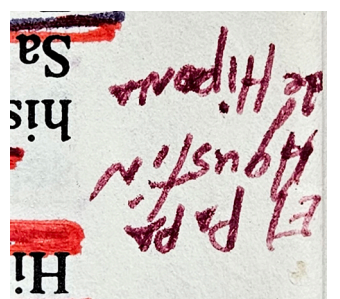 El Papá
Agustín
de Hipona
Hi
his
Sa